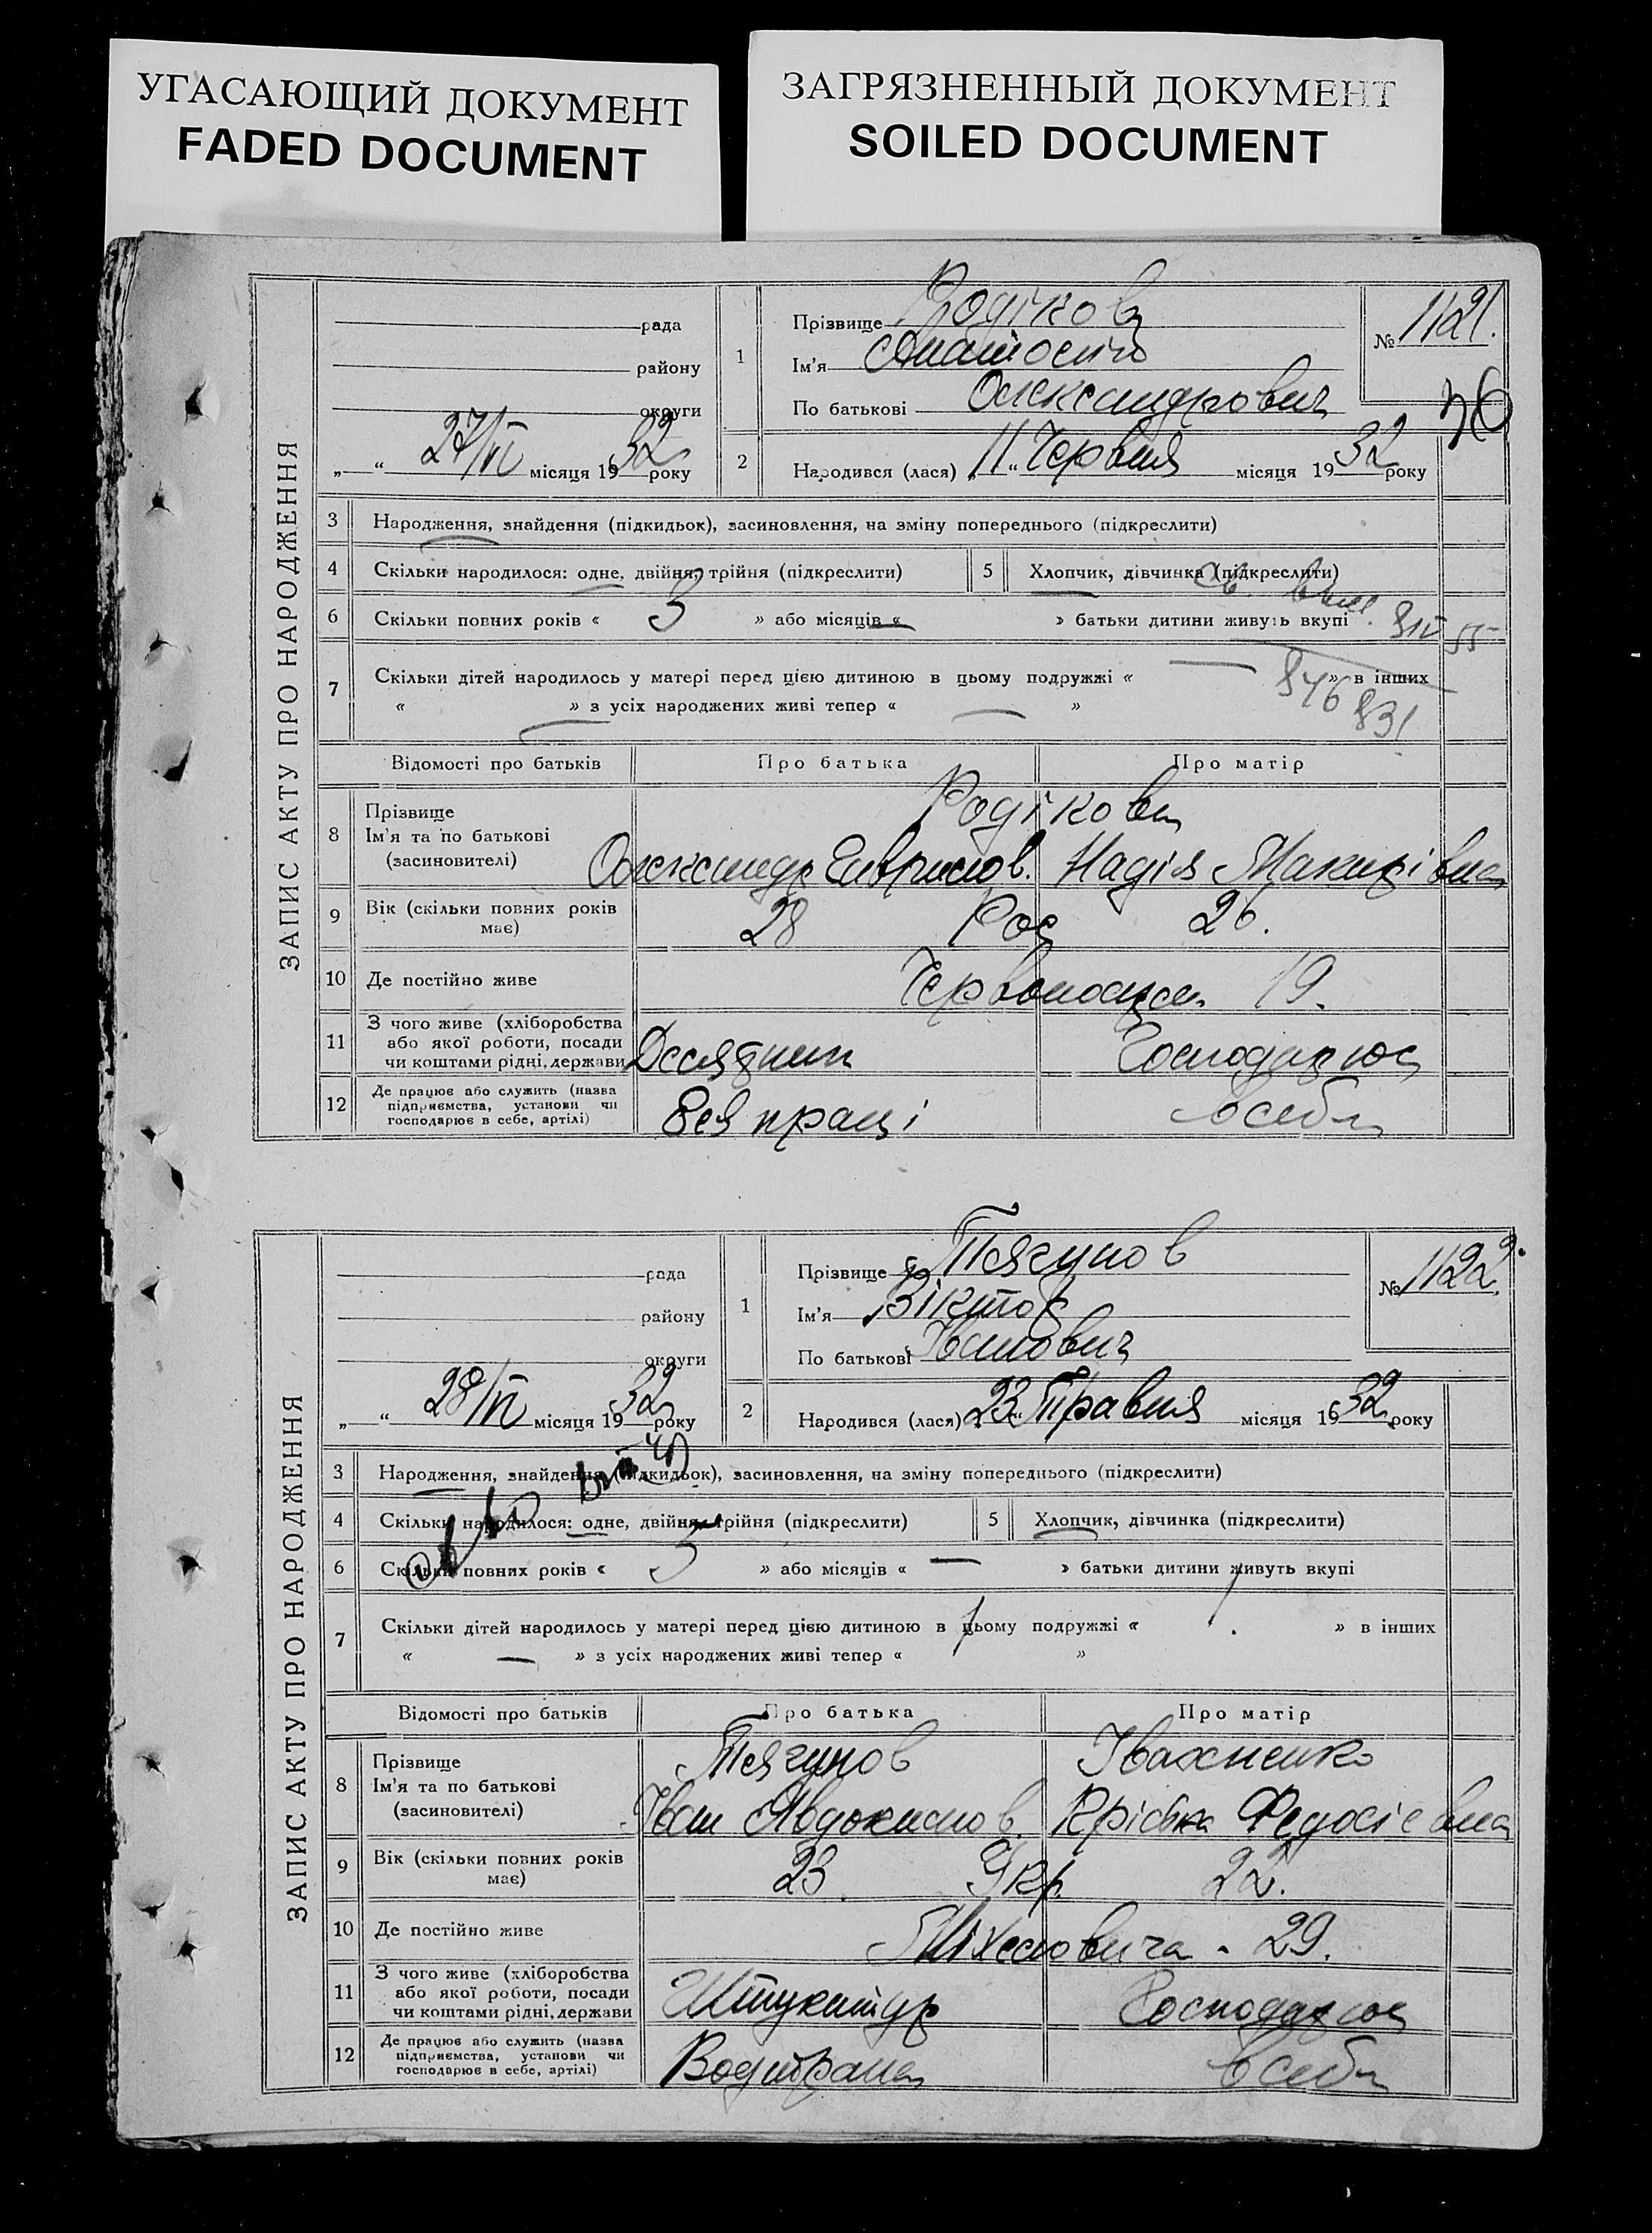 УГАСАЮЩИЙ ДОКУМЕНТ
FADED DOCUMENT
ЗАГРЯЗНЕННЫЙ ДОКУМЕНТ
SOILED DOCUMENT
ЗАПИС АКТУ ПРО НАРОДЖЕННЯ
рада
району
округи
„ “ 27/VI місяця 1932 року
1
Прізвище Родіков
Ім'я Анатолій
По батькові Олександрович
№ 1121.
2
Народився (лася) „11“ Червня місяця 1932 року
3 Народження, знайдення (підкидьок), засиновлення, на зміну попереднього (підкреслити)
4 Скільки народилося: одне, двійня, трійня (підкреслити) 5 Хлопчик, дівчинка (підкреслити)
6 Скільки повних років « 3 » або місяців « — » батьки дитини живуть вкупі
7 Скільки дітей народилось у матері перед цією дитиною в цьому подружжі « — » в інших
« — » з усіх народжених живі тепер « — »
846831
Відомості про батьків Про батька Про матір
8 Прізвище
Ім'я та по батькові
(засиновителі)
Родікови
Олександр Надія
9 Вік (скільки повних років має) 28 Рос 26.
10 Де постійно живе 19.
11 З чого живе (хліборобства або якої роботи, посади чи коштами рідні, держави Десятник Господарює
12 Де працює або служить (назва підприємства, установи чи господарює в себе, артілі) Без праці в себе
ЗАПИС АКТУ ПРО НАРОДЖЕННЯ
рада
району
округи
„ “ 28/VI місяця 1932 року
1
Прізвище Тягунов
Ім'я Віктор
По батькові Іванович
№ 1122.
2
Народився (лася) „23“ Травня місяця 1932 року
3 Народження, знайдення (підкидьок), засиновлення, на зміну попереднього (підкреслити)
4 Скільки народилося: одне, двійня, трійня (підкреслити) 5 Хлопчик, дівчинка (підкреслити)
6 Скільки повних років « 3 » або місяців « — » батьки дитини живуть вкупі
7 Скільки дітей народилось у матері перед цією дитиною в цьому подружжі « 1 » в інших
« — » з усіх народжених живі тепер « 1 »
Відомості про батьків Про батька Про матір
8 Прізвище
Ім'я та по батькові
(засиновителі)
Тягунов Івахненко
Іван Авдокимов. Федосієвна
9 Вік (скільки повних років має) 23 Укр. 22.
10 Де постійно живе 29.
11 З чого живе (хліборобства або якої роботи, посади чи коштами рідні, держави Штукатур Господарює
12 Де працює або служить (назва підприємства, установи чи господарює в себе, артілі) в себе